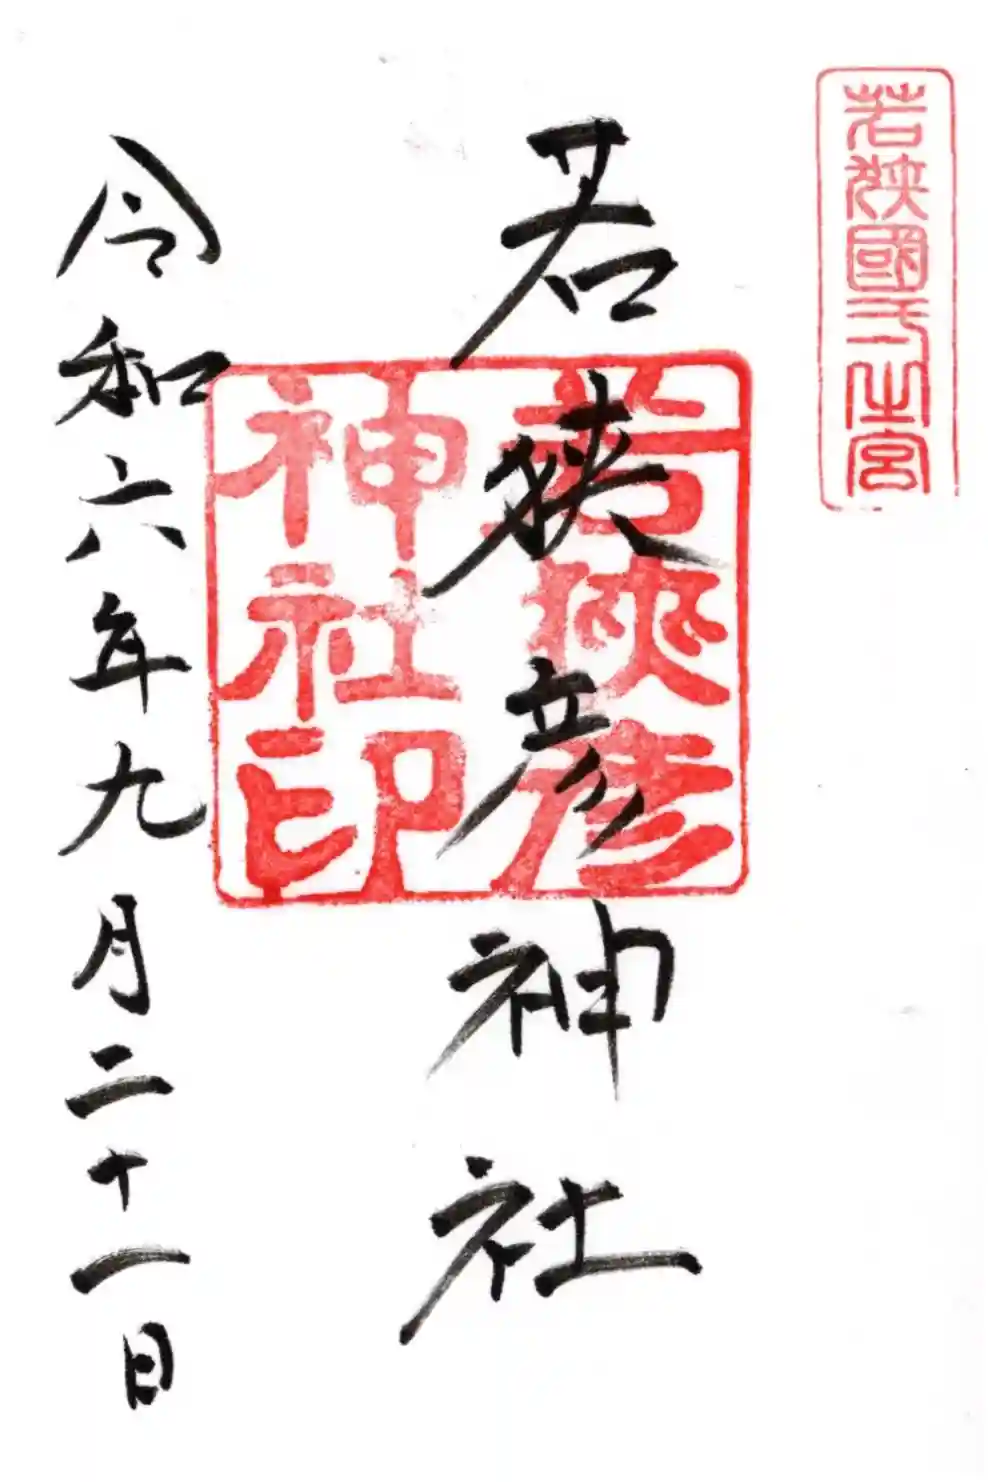 若狭國一之宮
若狭彦神社
若狭彦
神社印
令和六年九月二十一日